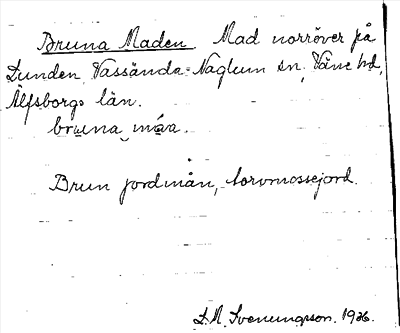 Bruna Maden. Mad norröver på
Lunden, Vassända-Naglum sn, Väne hd,
Älfsborgs län.
bruna måa.
Brun jordmån, torvmossejord.
L. M. Svenungsson. 1926.